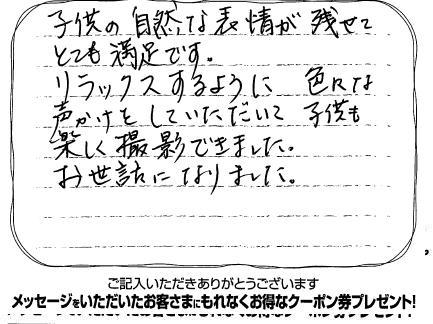 子供の自然な表情が残せて
とても満足です。
リラックスするように 色々な
声かけをしていただいて 子供も
楽しく撮影できました。
お世話になりました。
ご記入いただきありがとうございます
メッセージをいただいたお客さまにもれなくお得なクーポン券プレゼント!